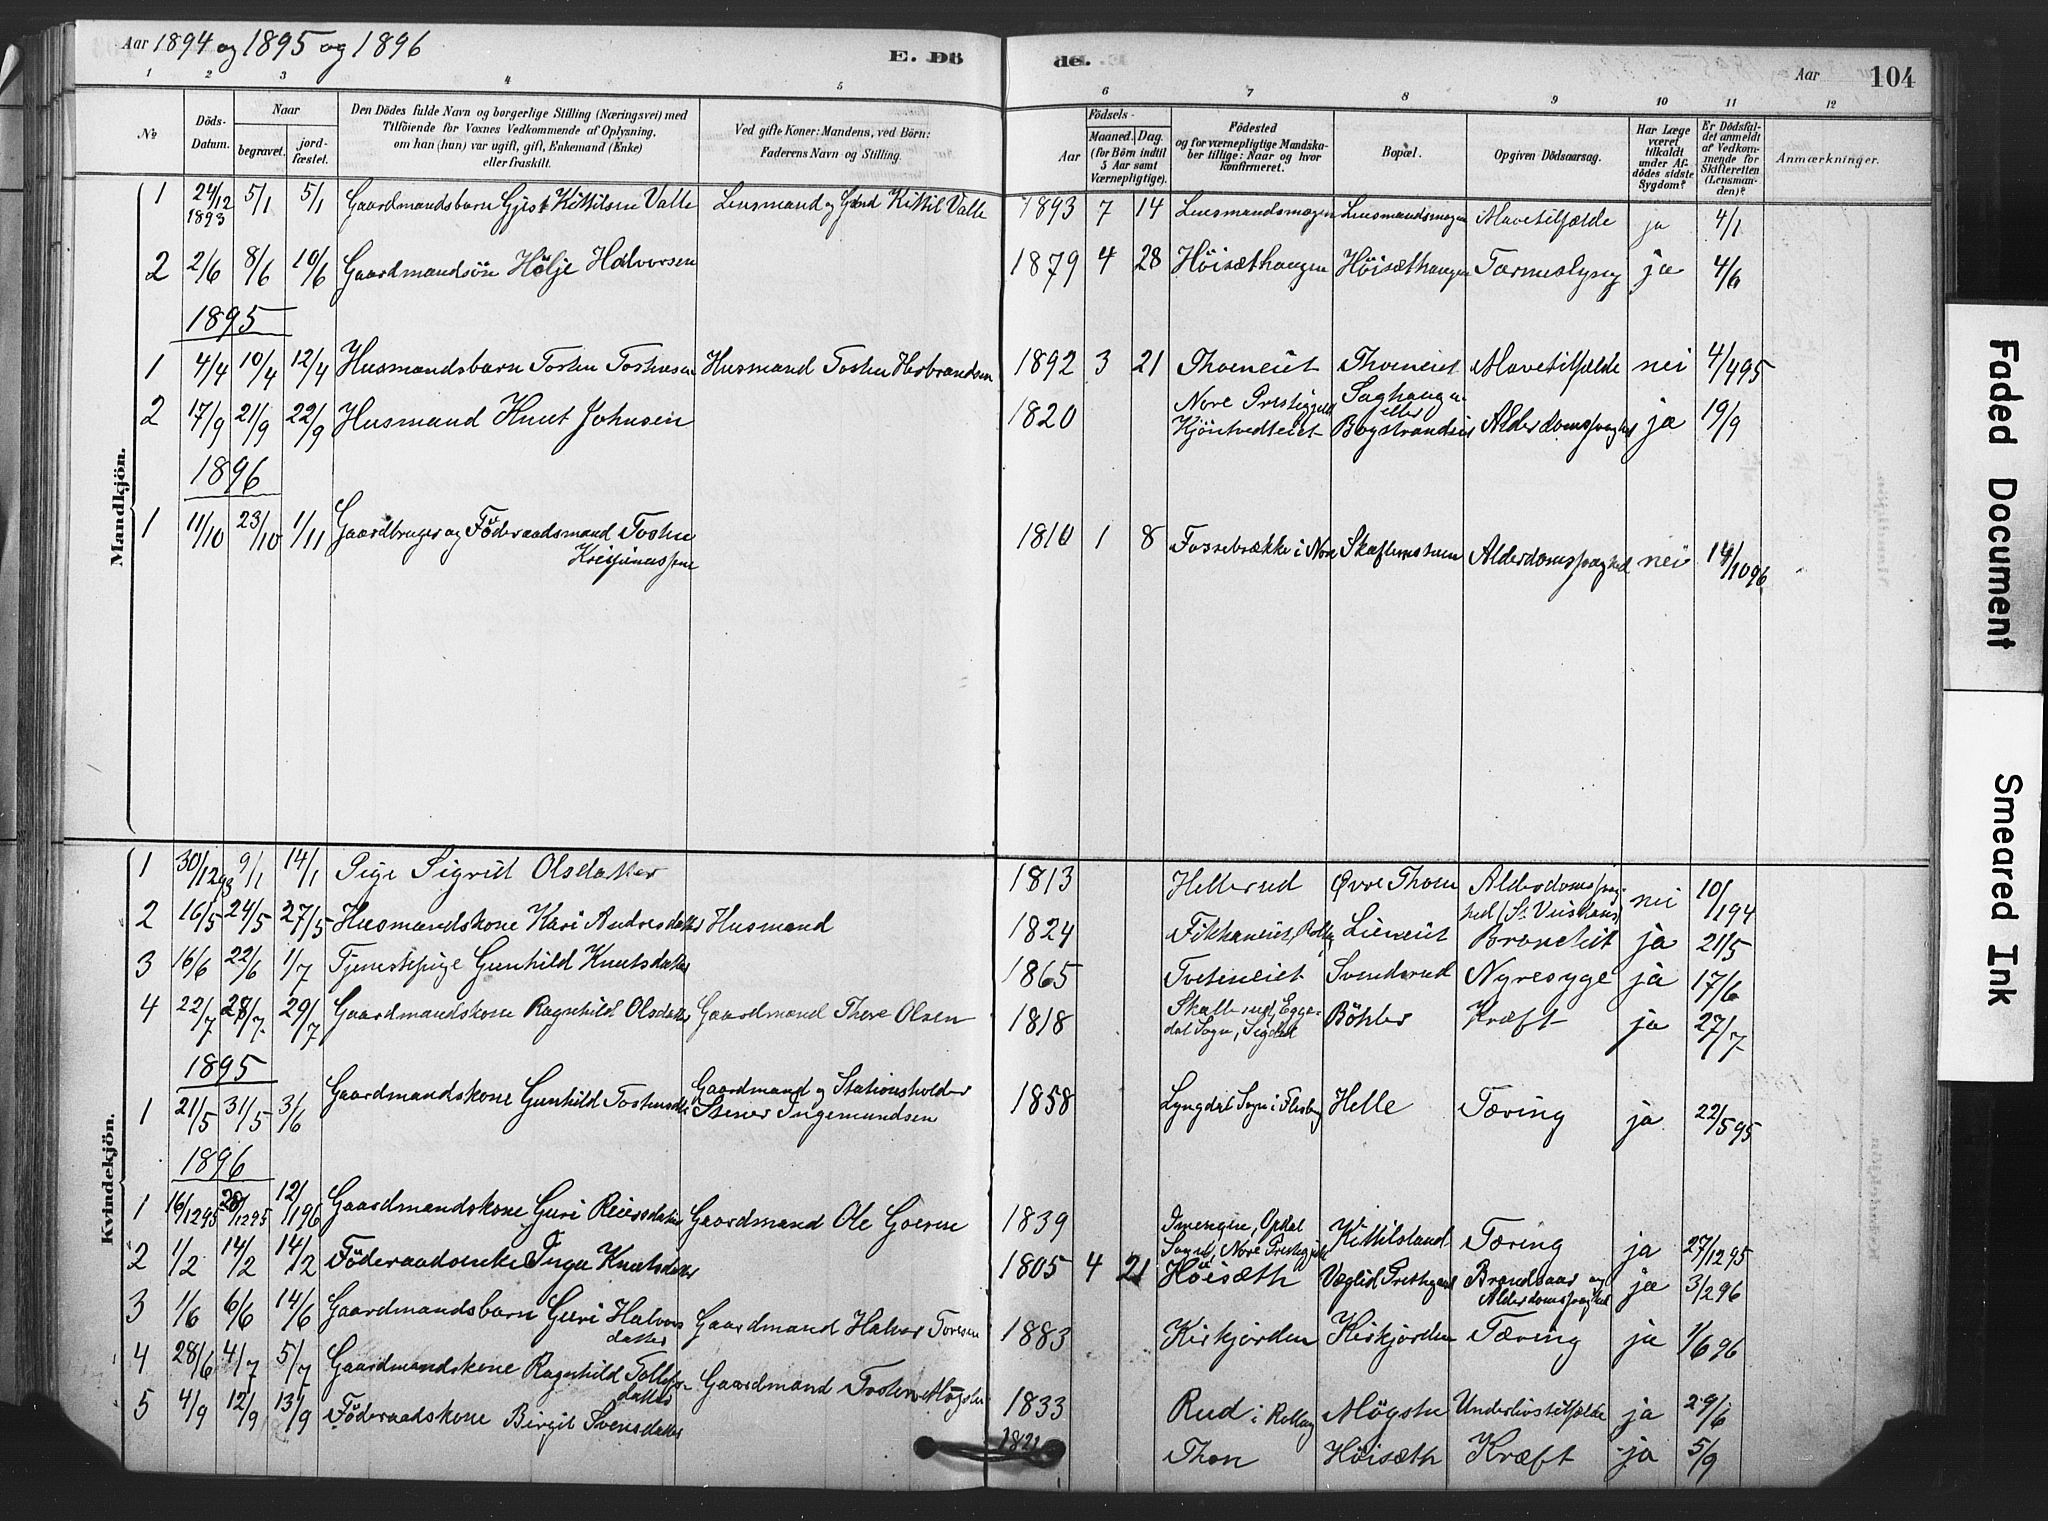 Aar 1894 og 1895 og 1896
E. Dö
de.
Aar
104
1 2 3 4 5 6 7 8 9 10 11 12
No
Döds-Datum.
Naar
begravet.
jord-fæstet.
Den Dödes fulde Navn og borgerlige Stilling (Næringsvei) med
Tilföiende for Voxnes Vedkommende af Oplysning,
om han (hun) var ugift, gift, Enkemand (Enke)
eller fraskilt.
Ved gifte Koner: Mandens, ved Börn:
Faderens Navn og Stilling.
Födsels-
Aar
Maaned. Dag.
(for Börn indtil
5 Aar samt
Værnepligtige).
Födested
og for værnepligtige Mandska-
ber tillige: Naar og hvor
konfirmeret.
Bopæl.
Opgiven Dödsaarsag.
Har Læge
været
tilkaldt
under Af-
dödes sidste
Sygdom?
Er Dödsfal-
det anmeldt
af Vedkom-
mende for
Skifteretten
(Lensman-
den)?
Anmærkninger.
Mandkjön.
1 24/12 1893 5/1 5/1 Gaardmandsbarn Kittilsen Valle Lensmand og Kittil Valle 1893 7 14 Lensmandsmogen Lensmandsmogen Mavetilfælde ja 4/1
2 2/6 8/6 10/6 Gaardmandsön Hölje Halvorsen 1879 4 28 Höisæthaugen Höisæthaugen Tarmeslyng ja 4/6
1895
1 4/4 10/4 12/4 Husmandsbarn Tosten Tostensen Husmand Tosten Herbrandsen 1892 3 21 Thoeneiet Thoeneiet Mavetilfælde nei 4/4 95
2 17/9 21/9 22/9 Husmand Knut Johnsen 1820 Nore Prestigjeld Kjöntvedteiet Saghaugen eller Bogstrandeie Alderdomssvaghed ja 19/9
1896
1 11/10 23/10 1/11 Gaardbruger og Föderaadsmand Tosten
1810 1 8 Fossebrække i Nore Alderdomssvaghed nei 14/10 96
Kvindekjön.
1 30/12 93 9/1 14/1 Pige Sigrid Olsdatter 1813 Hellerud Øvre Thoen Alderdomssvaghed nei 10/1 94
2 16/5 24/5 27/5 Husmandskone Kari Andresdatter Husmand 1824 Lieneiet Bronchit ja 21/5
3 16/6 22/6 1/7 Tjenestepige Gunhild Knutsdatter 1865 Tveteneiet Svendsrud Nyresyge ja 17/6
4 22/7 28/7 29/7 Gaardmandskone Ragnhild Olsdatter Gaardmand Thore Olsen 1818 Skallerud, Eggedal Sogn, Sigdal Böhler Kræft ja 27/7
1895
1 21/5 31/5 3/6 Gaardmandskone Gunhild Tostensdtr Gaardmand og Stationsholder Stener Ingemundsen 1858 Lyngdal Sogn i Flesberg Helle Tæring ja 22/5 95
1896
1 16/12 95 28/12 95 12/1 96 Gaardmandskone Guri Reiersdatter Gaardmand Ole Goerne 1839 Imengen, Opdal Sogn, Nore Prestegjeld Kittilsland Tæring ja 27/12 95
2 1/2 14/2 14/2 Föderaadsenke Inga Knutsdatter 1805 4 21 Höisæth Væglid Prestegaard Brandsaar og Alderdomssvaghed ja 3/2 96
3 1/6 6/6 14/6 Gaardmandsbarn Guri Halvorsdatter Gaardmand Halvor Toresen 1883 Kirkjorden Kirkjorden Tæring ja 1/6 96
4 28/6 4/7 5/7 Gaardmandskone Ragnhild Tollefsdatter Gaardmand Tosten Mögsten 1833 Rud i Rollag Mögsten Underlivstilfælde ja 29/6
5 4/9 12/9 13/9 Föderaadskone Birgit Svensdatter 1821 Thon Höisæth Kræft ja 5/9
Faded Document
Smeared Ink